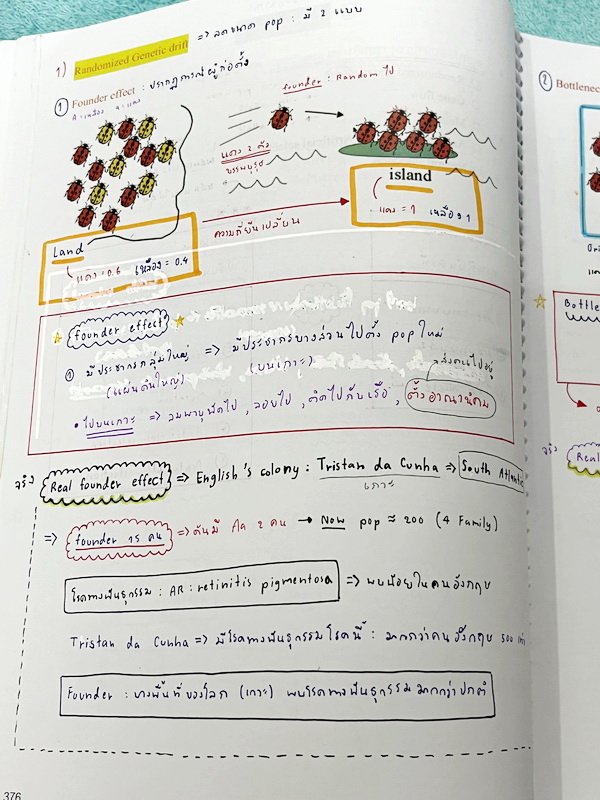 1) Randomized Genetic drift => ลดขนาด pop : มี 2 แบบ
① Founder effect : ปรากฏการณ์ผู้ก่อตั้ง
A = เหลือง a = แดง
founder : Random ไป
แดง 2 ตัว
บรรพบุรุษ
island
แดง = 1 เหลือง
ความถี่ยีนเปลี่ยน
Land
แดง = 0.6 เหลือง = 0.4
founder effect
① มีประชากรกลุ่มใหญ่ => มีประชากรบางส่วนไปตั้ง pop ใหม่
(แผ่นดินใหญ่) (บนเกาะ)
ส่งคนไปอยู่
• ไปบนเกาะ => ลมพายุพัดไป , ลอยไป , ติดไปกับเรือ , ตั้งอาณานิคม
จริง Real founder effect => English's colony : Tristan da Cunha => South Atlantic
เกาะ
=> founder 15 คน => ดันมี Aa 2 คน → Now pop ≈ 200 (4 Family)
โรคทางพันธุกรรม : AR : retinitis pigmentosa => พบน้อยในคนอังกฤษ
Tristan da Cunha => มีโรคทางพันธุกรรมโรคนี้ : มากกว่าคนอังกฤษ 500 เท่า
Founder : บางพื้นที่ของโลก (เกาะ) พบโรคทางพันธุกรรมมากกว่าปกติ
376
② Bottlenec
Ori
Bottle
จริง Real